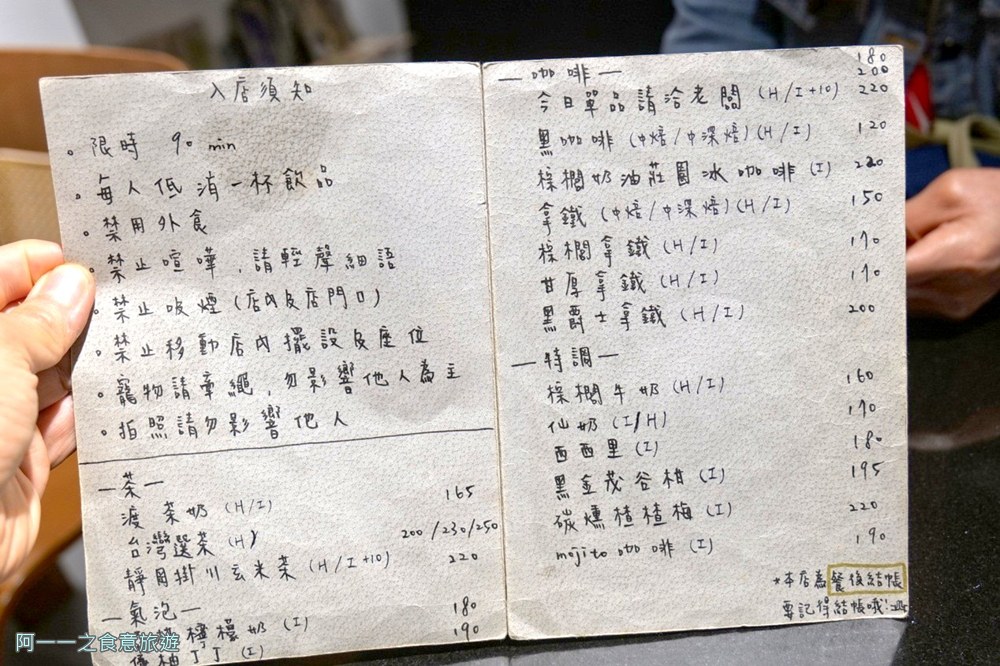 入店須知
。限時 90 min
。每人低消一杯飲品
。禁用外食
。禁止喧嘩，請輕聲細語
。禁止吸煙（店內及店門口）
。禁止移動店內擺設及座位
。寵物請牽繩，勿影響他人為主
。拍照請勿影響他人
—茶—
渡 茶奶 (H/I) 165
台灣選茶 (H) 200/230/250
靜岡掛川玄米茶 (H/I+10) 220
—氣泡—
檸檬奶 (I) 180
柚丁丁 (I) 190
—咖啡— 180
200
今日單品請洽老闆 (H/I+10) 220
黑咖啡 (中焙/中深焙)(H/I) 120
棕櫚奶油莊園冰咖啡 (I) 220
拿鐵 (中焙/中深焙)(H/I) 150
棕櫚拿鐵 (H/I) 170
甘厚拿鐵 (H/I) 170
黑爵士拿鐵 (H/I) 200
—特調—
棕櫚牛奶 (H/I) 160
仙奶 (I/H) 170
西西里 (I) 180
黑金茂谷柑 (I) 195
碳燻楂楂梅 (I) 220
mojito 咖啡 (I) 190
*本店為餐後結帳
要記得結帳哦!
阿一一之食意旅遊